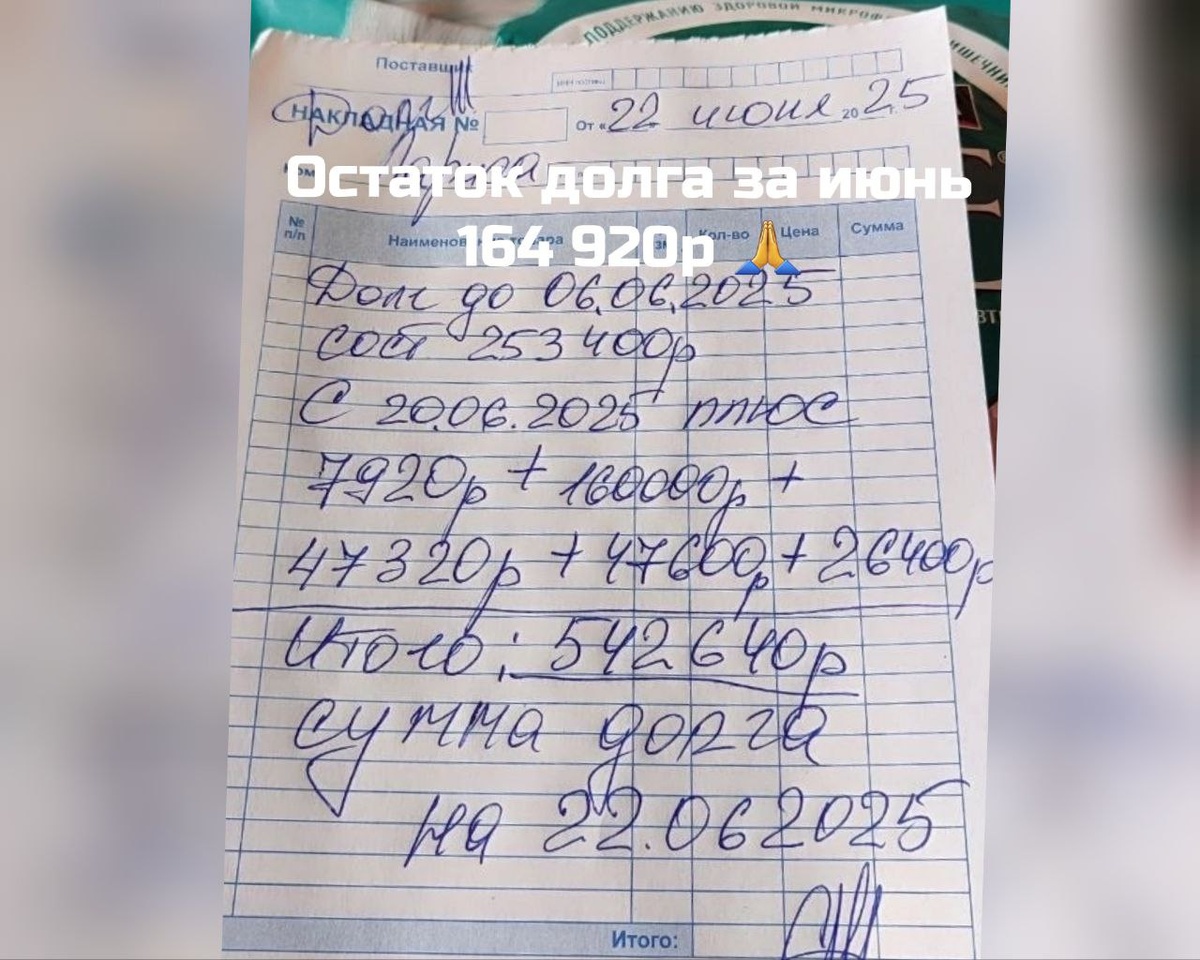 ПОДДЕРЖАНИЮ ЗДОРОВОЙ МИКРОФ
ИШЕЧНИ
Поставщик
НАКЛАДНАЯ № От «22 июня 2025 г.
Лариса
Остаток долга за июнь
164 920р 🙏
№ п/п Наименование товара Кол-во Цена Сумма
Долг до 06.06.2025
сост 253400р
С 20.06.2025 плюс
7920р + 160000р +
47320р + 47600р + 26400р
Итого: 542640р
сумма долга
на 22.062025
Итого: